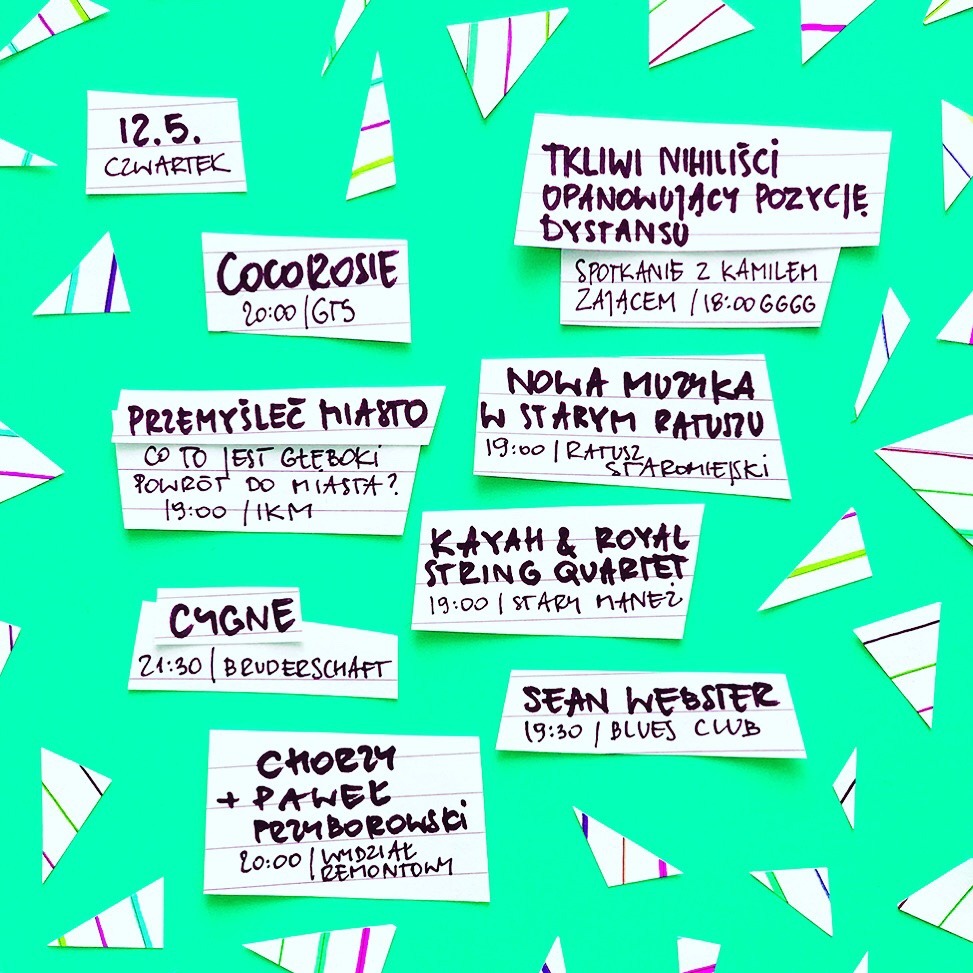 12.5.
CZWARTEK
TKLIWI NIHILIŚCI
OPANOWUJĄCY POZYCJĘ
DYSTANSU
SPOTKANIE Z KAMILEM
ZAJĄCEM / 18:00 GGGG
COCOROSIE
20:00 / GTS
NOWA MUZYKA
W STARYM RATUSZU
19:00 / RATUSZ
STAROMIEJSKI
PRZEMYŚLEĆ MIASTO
CO TO JEST GŁĘBOKI
POWRÓT DO MIASTA?
19:00 / IKM
KAYAH & ROYAL
STRING QUARTET
19:00 / STARY MANEŻ
CYGNE
21:30 / BRUDERSCHAFT
SEAN WEBSTER
19:30 / BLUES CLUB
CHORZY
+ PAWEŁ
PRZYBOROWSKI
20:00 / WYDZIAŁ
REMONTOWY